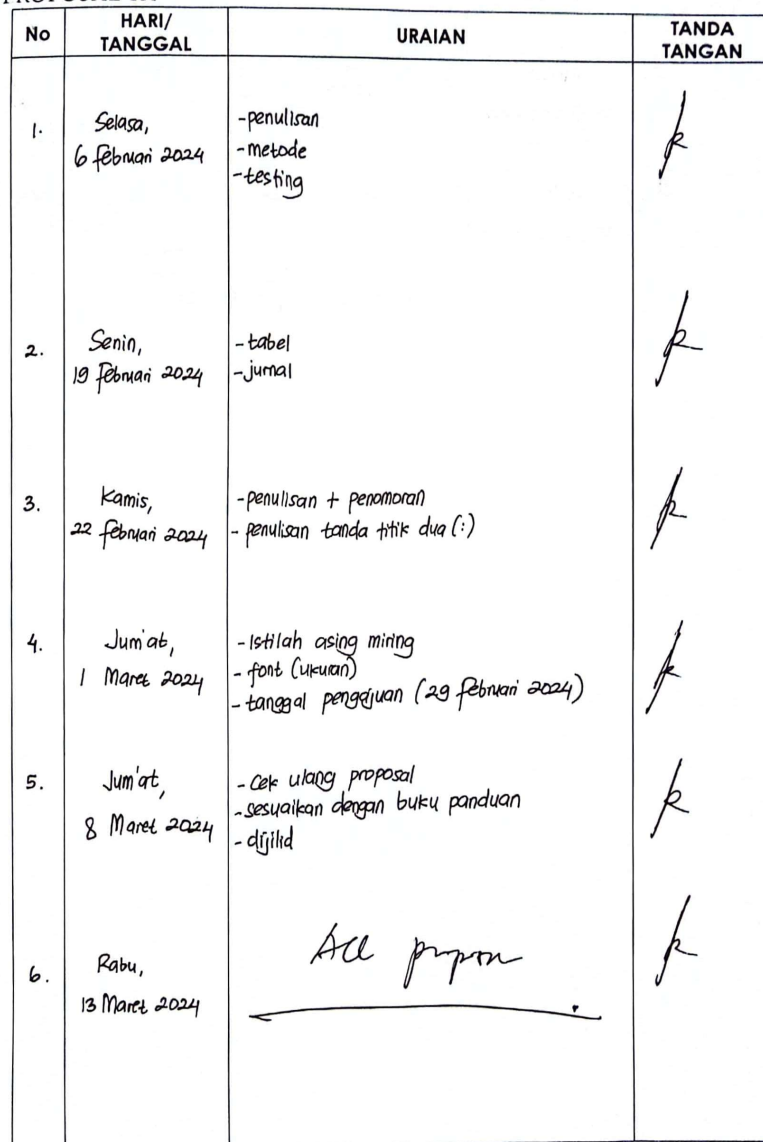 No
HARI/
TANGGAL
URAIAN
TANDA
TANGAN
1.
Selasa,
6 Februari 2024
-penulisan
-metode
-testing
2.
Senin,
19 Februari 2024
-tabel
-jurnal
3.
Kamis,
22 Februari 2024
-penulisan + penomoran
- penulisan tanda titik dua (:)
4.
Jum'at,
1 Maret 2024
- Istilah asing miring
- font (ukuran)
- tanggal pengajuan (29 Februari 2024)
5.
Jum'at,
8 Maret 2024
- Cek ulang proposal
- sesuaikan dengan buku panduan
- dijilid
6.
Rabu,
13 Maret 2024